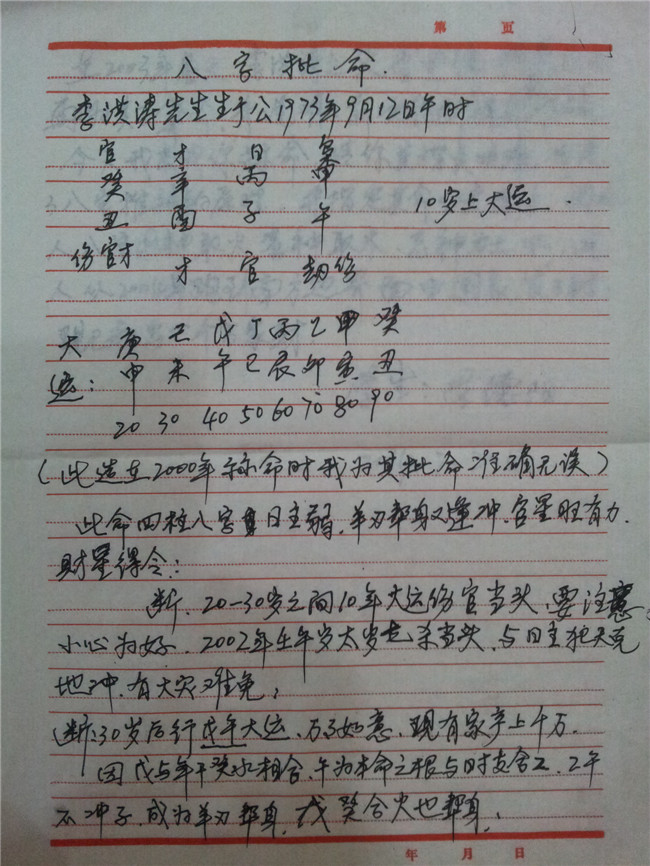 第 页
八字批命.
李洪涛先生生于公1973年9月12日午时
官 才 日
癸 辛 丙 甲
丑 酉 子 午 10岁上大运.
伤官才 才 官 劫伤
大 庚 己 戊 丁 丙 乙 甲 癸
运: 申 未 午 巳 辰 卯 寅 丑
20 30 40 50 60 70 80 90
(此造在2000年 命时我为其批命准确无误)
此命四柱八字 日主弱,羊刃帮身又逢冲,官星旺有力.
财星得令:
断,20-30岁之间10年大运伤官当头,要注意,
小心为好,2002年壬午岁太岁 杀当头,与日主犯天克
地冲,有大灾难免;
断:30岁后行戊午大运,万事如意,现有家产上千万.
因戊与年干癸水相合,午为本命之根与时支会 ,二午
不冲子,成为羊刃帮身,戊癸合火也帮身,
年 月 日